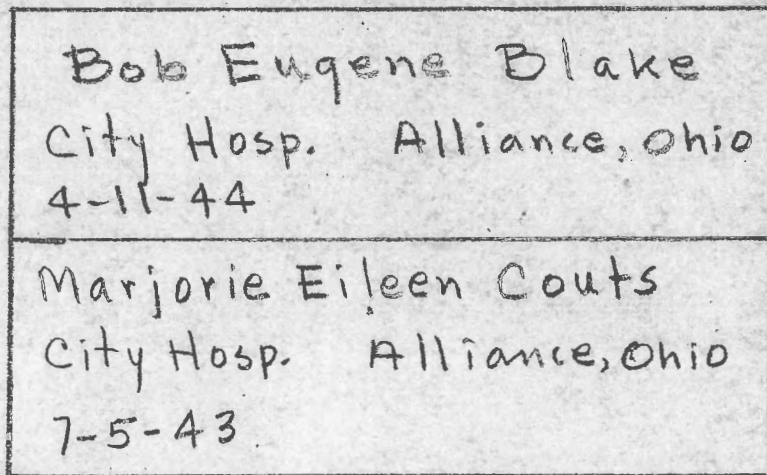 Bob Eugene Blake
City Hosp. Alliance, Ohio
4-11-44
Marjorie Eileen Couts
City Hosp. Alliance, Ohio
7-5-43